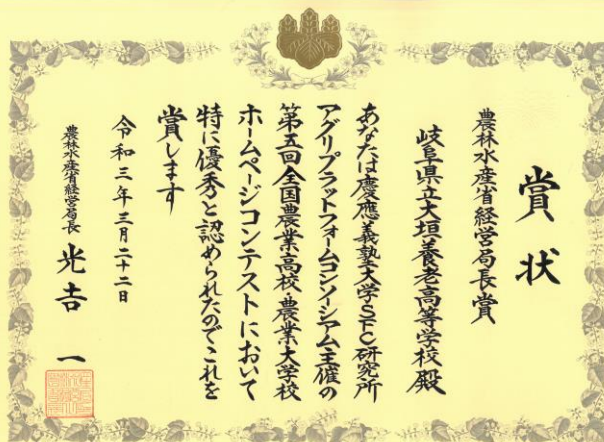 賞状
農林水産省経営局長賞
岐阜県立大垣養老高等学校殿
あなたは慶應義塾大学SFC研究所
アグリプラットフォームコンソーシアム主催の
第五回全国農業高校・農業大学校
ホームページコンテストにおいて
特に優秀と認められたのでこれを
賞します
令和三年三月二十二日
農林水産省経営局長 光吉 一